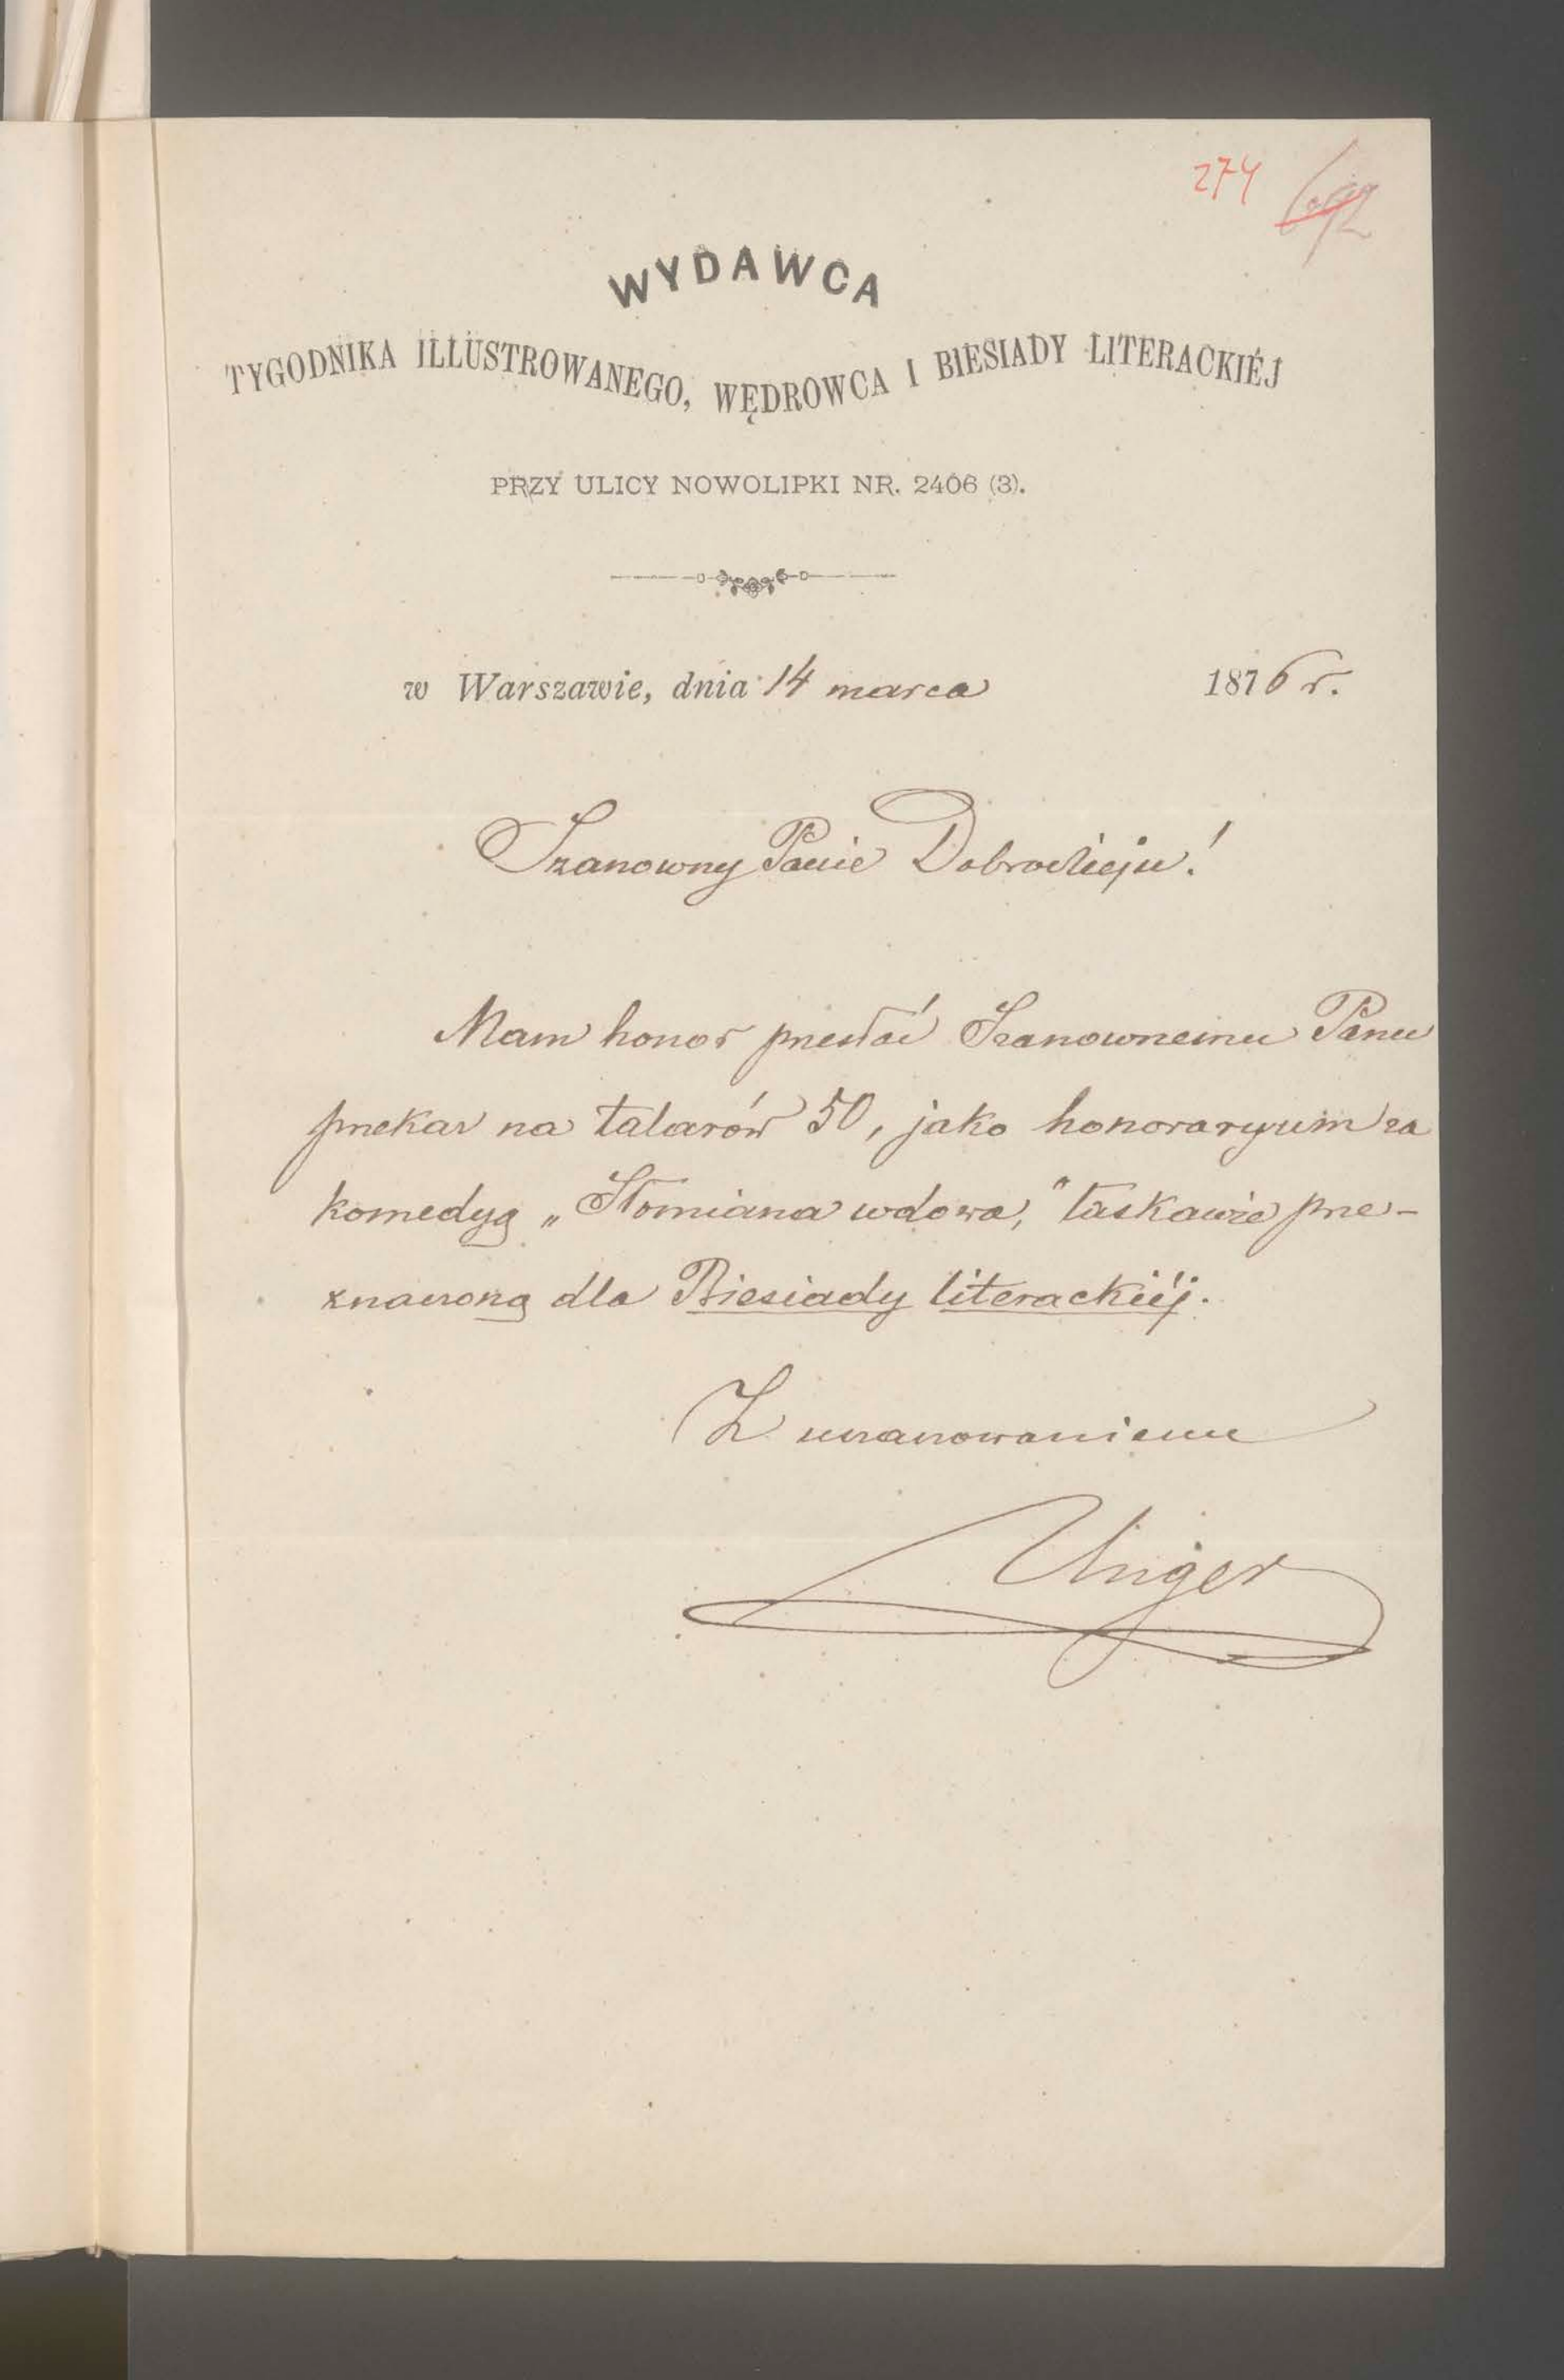 274 692
WYDAWCA
TYGODNIKA ILLUSTROWANEGO, WĘDROWCA I BIESIADY LITERACKIÉJ
PRZY ULICY NOWOLIPKI NR. 2406 (3).
w Warszawie, dnia 14 marca 1876 r.
Szanowny Panie Dobrodzieju!
Mam honor przesłać Szanownemu Panu
przekaz na talarów 50, jako honoraryum za
komedyą „Słomiana wdowa,” łaskawie prze-
znaczoną dla Biesiady literackiéj.
Z uszanowaniem
Unger